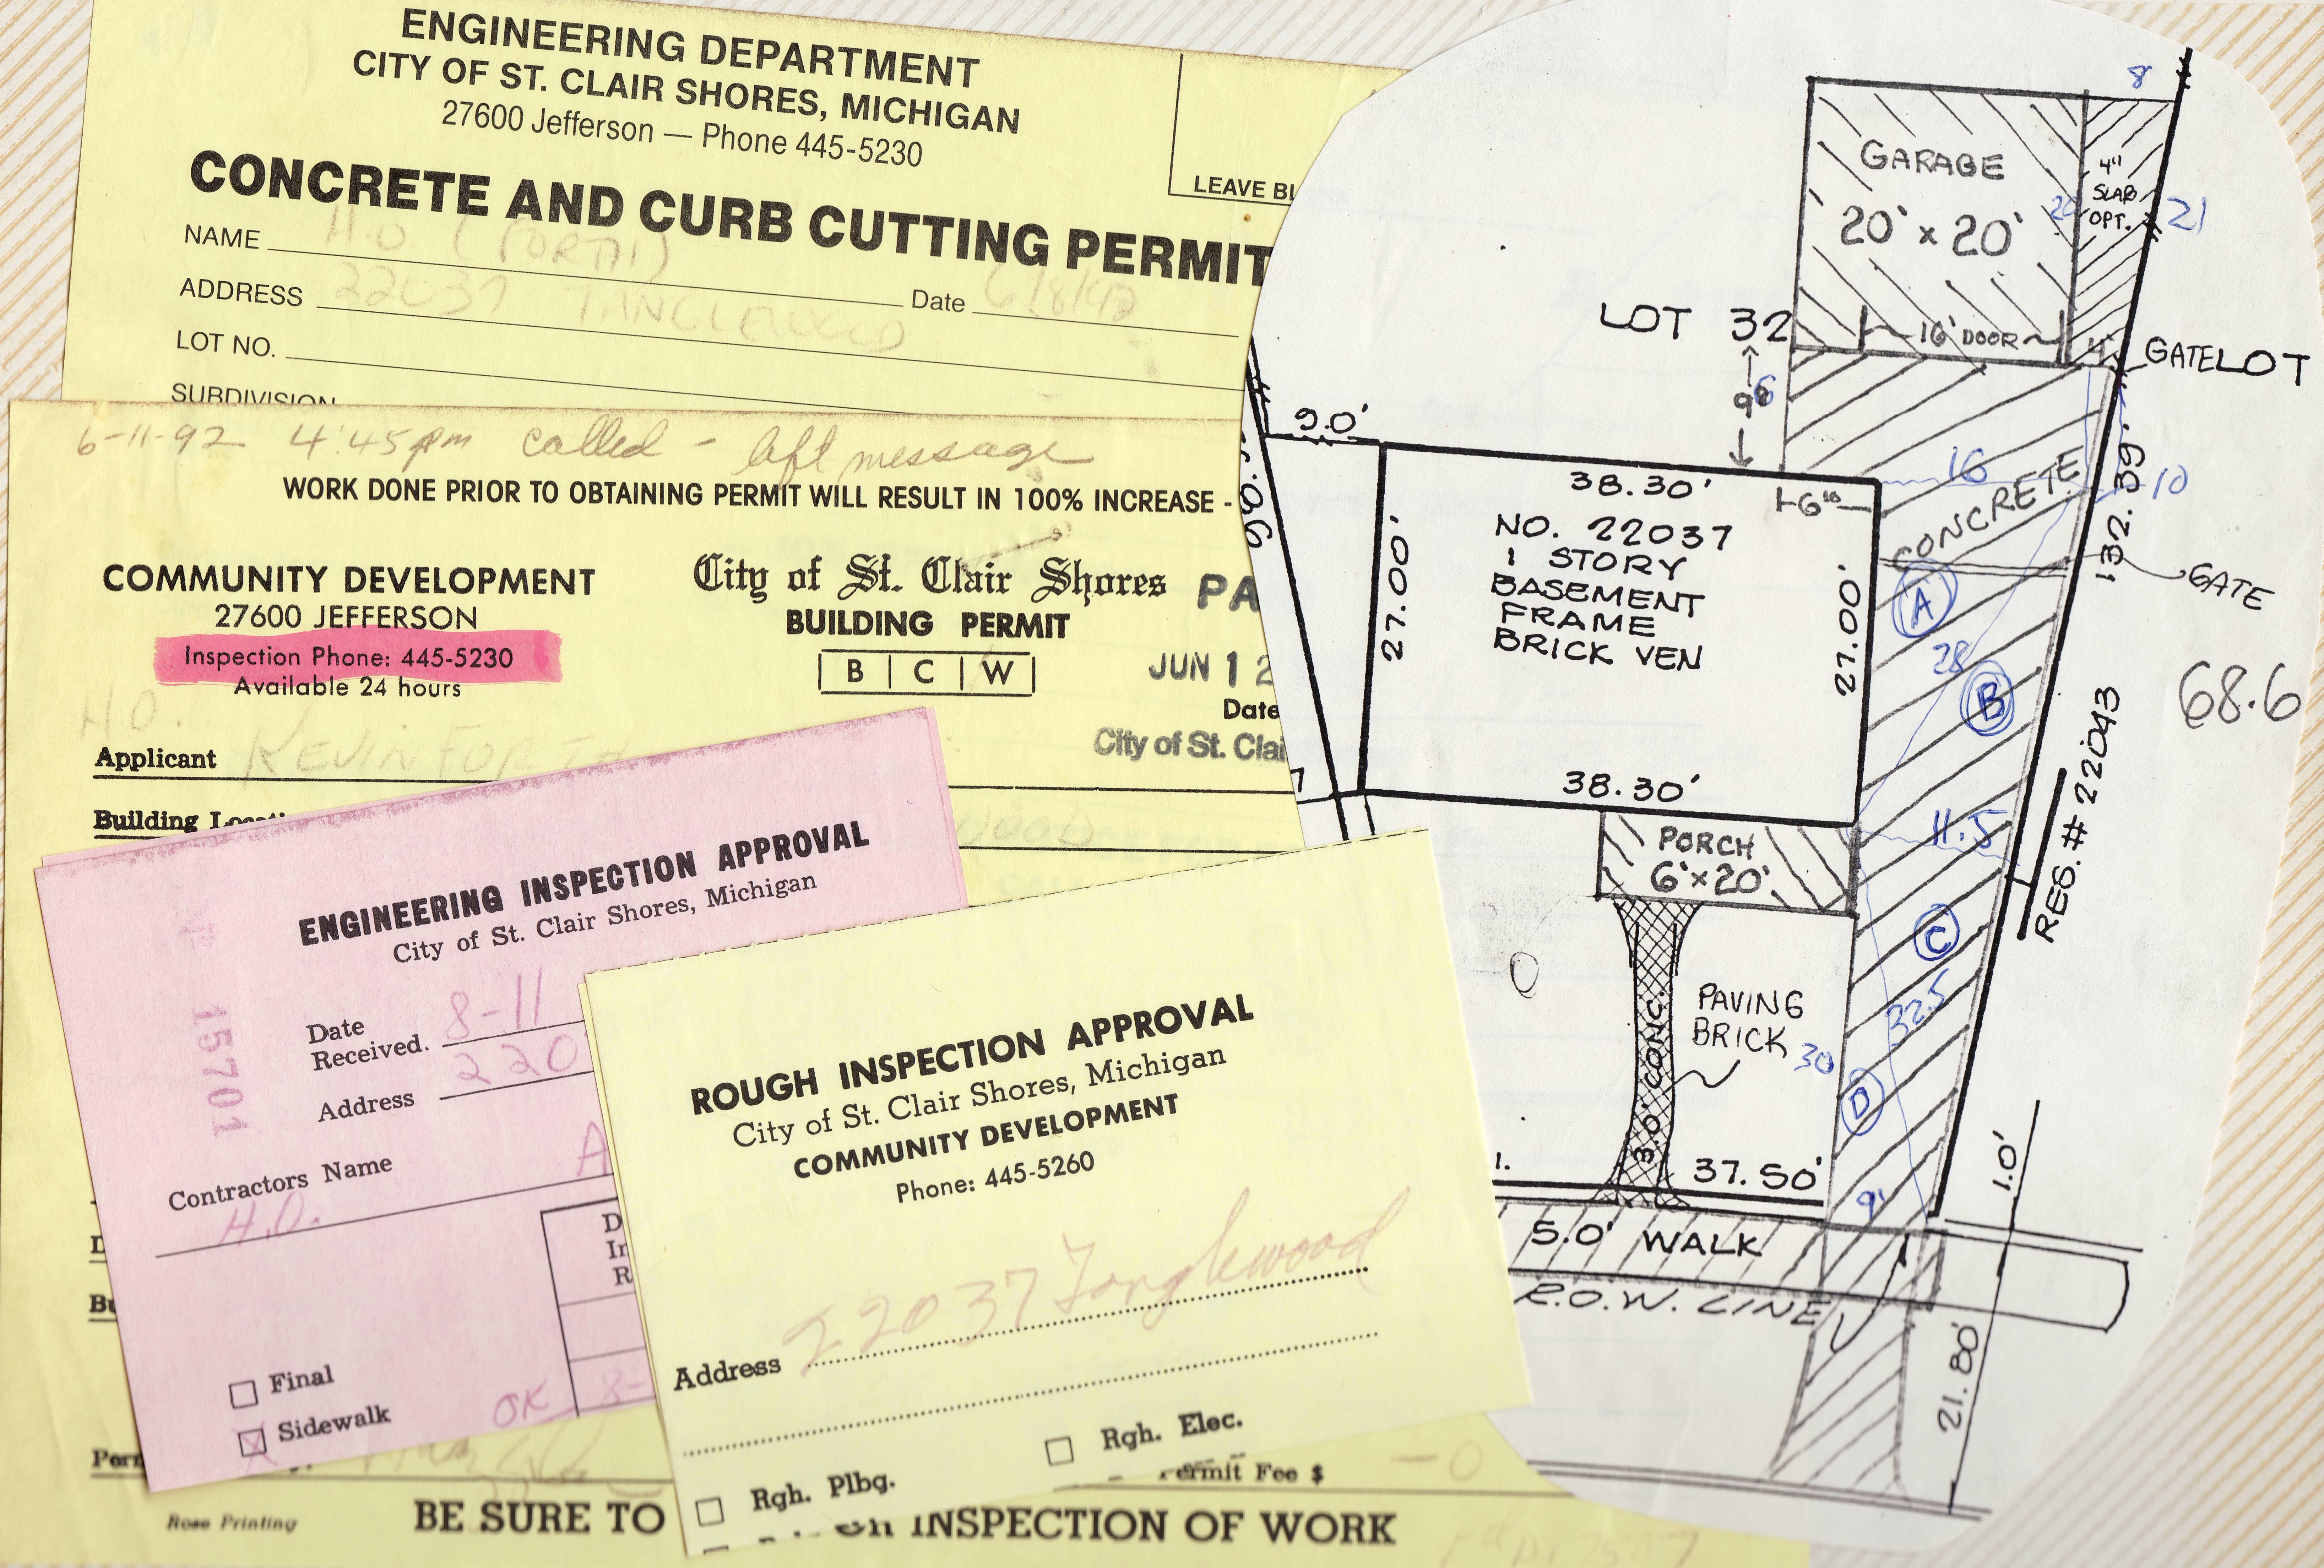 ENGINEERING DEPARTMENT
CITY OF ST. CLAIR SHORES, MICHIGAN
27600 Jefferson — Phone 445-5230
LEAVE BL
CONCRETE AND CURB CUTTING PERMIT
NAME H.O (FORTH)
ADDRESS 22037 TANGLEWOOD Date 6/8/92
LOT NO.
SUBDIVISION
6-11-92 4:45pm called - left message
WORK DONE PRIOR TO OBTAINING PERMIT WILL RESULT IN 100% INCREASE -
COMMUNITY DEVELOPMENT
27600 JEFFERSON
Inspection Phone: 445-5230
Available 24 hours
City of St. Clair Shores
BUILDING PERMIT
B | C | W
PA
JUN 12
Date
City of St. Clai
H.O.
Applicant KEVIN FORTH
Building Locati
WOOD
ENGINEERING INSPECTION APPROVAL
City of St. Clair Shores, Michigan
15701
Date
Received. 8-11
Address 220
Contractors Name A
H.O.
D
In
R
Final
Sidewalk
OK 8-
ROUGH INSPECTION APPROVAL
City of St. Clair Shores, Michigan
COMMUNITY DEVELOPMENT
Phone: 445-5260
Address 22037 Tanglewood
Rgh. Elec.
Rgh. Plbg.
Perm
Permit Fee $ -0
Rose Printing
BE SURE TO
INSPECTION OF WORK
8
GARAGE
20' x 20'
20
4"
SLAB
OPT.
21
LOT 32
16' DOOR
4'
GATE
LOT
98
6
9.0'
38.30'
6"
16
10
CONCRETE
132.39'
NO. 22037
1 STORY
BASEMENT
FRAME
BRICK VEN
27.00'
27.00'
GATE
A
28
B
68.6
38.30'
11.5
RES. # 22043
PORCH
6' x 20'
C
32.5
PAVING
BRICK
30
3.0' CONC.
D
37.50'
9'
1.0'
5.0' WALK
R.O.W. LINE
21.80'